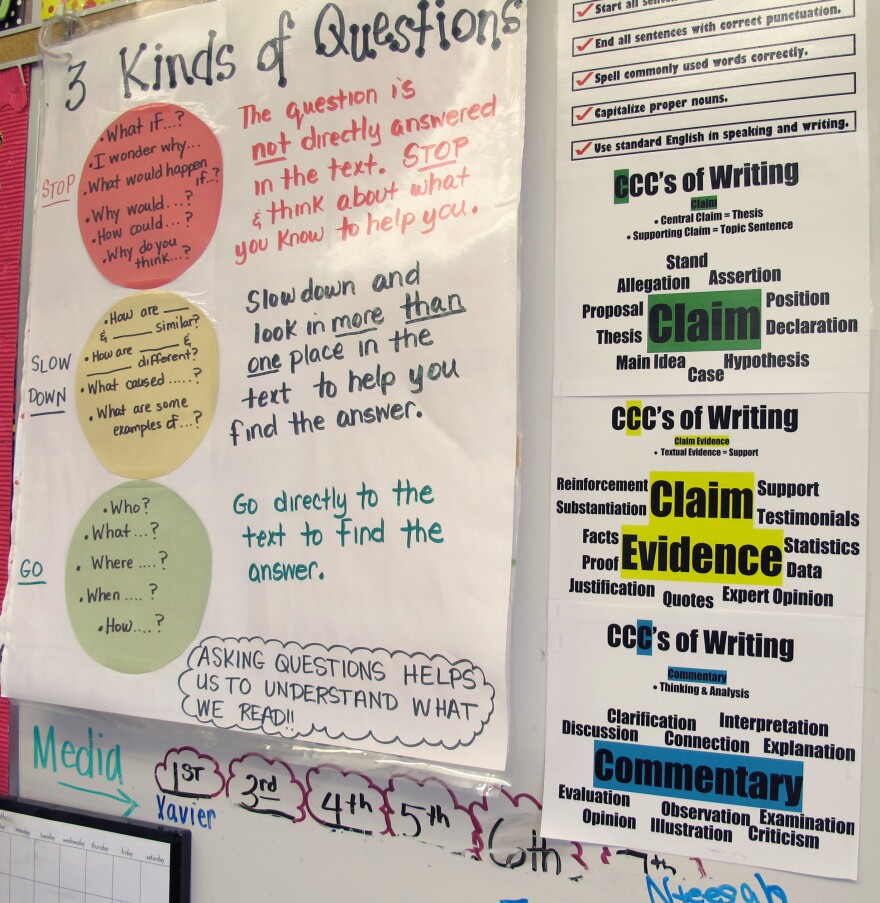 3 Kinds of Questions
STOP
• What if...?
• I wonder why...
• What would happen
if...?
• Why would...?
• How could...?
• Why do you
think...?
The question is
not directly answered
in the text. STOP
& think about what
you know to help you.
SLOW
DOWN
• How are ___
& ___ similar?
• How are ___ &
___ different?
• What caused .....?
• What are some
examples of...?
Slow down and
look in more than
one place in the
text to help you
find the answer.
GO
• Who?
• What...?
• Where ....?
• When ....?
• How....?
Go directly to the
text to find the
answer.
ASKING QUESTIONS HELPS
US TO UNDERSTAND WHAT
WE READ!!
Media
1ST 3rd 4th 5th 6th 7th
Xavier
Nyeesah
monday tuesday wednesday thursday friday saturday
Start all
End all sentences with correct punctuation.
Spell commonly used words correctly.
Capitalize proper nouns.
Use standard English in speaking and writing.
CCC's of Writing
Claim
• Central Claim = Thesis
• Supporting Claim = Topic Sentence
Stand
Allegation Assertion
Proposal Claim Position
Thesis Declaration
Main Idea Hypothesis
Case
CCC's of Writing
Claim Evidence
• Textual Evidence = Support
Reinforcement Claim Support
Substantiation Testimonials
Facts Evidence Statistics
Proof Data
Justification Quotes Expert Opinion
CCC's of Writing
Commentary
• Thinking & Analysis
Clarification Interpretation
Discussion Connection Explanation
Commentary
Evaluation Observation Examination
Opinion Illustration Criticism